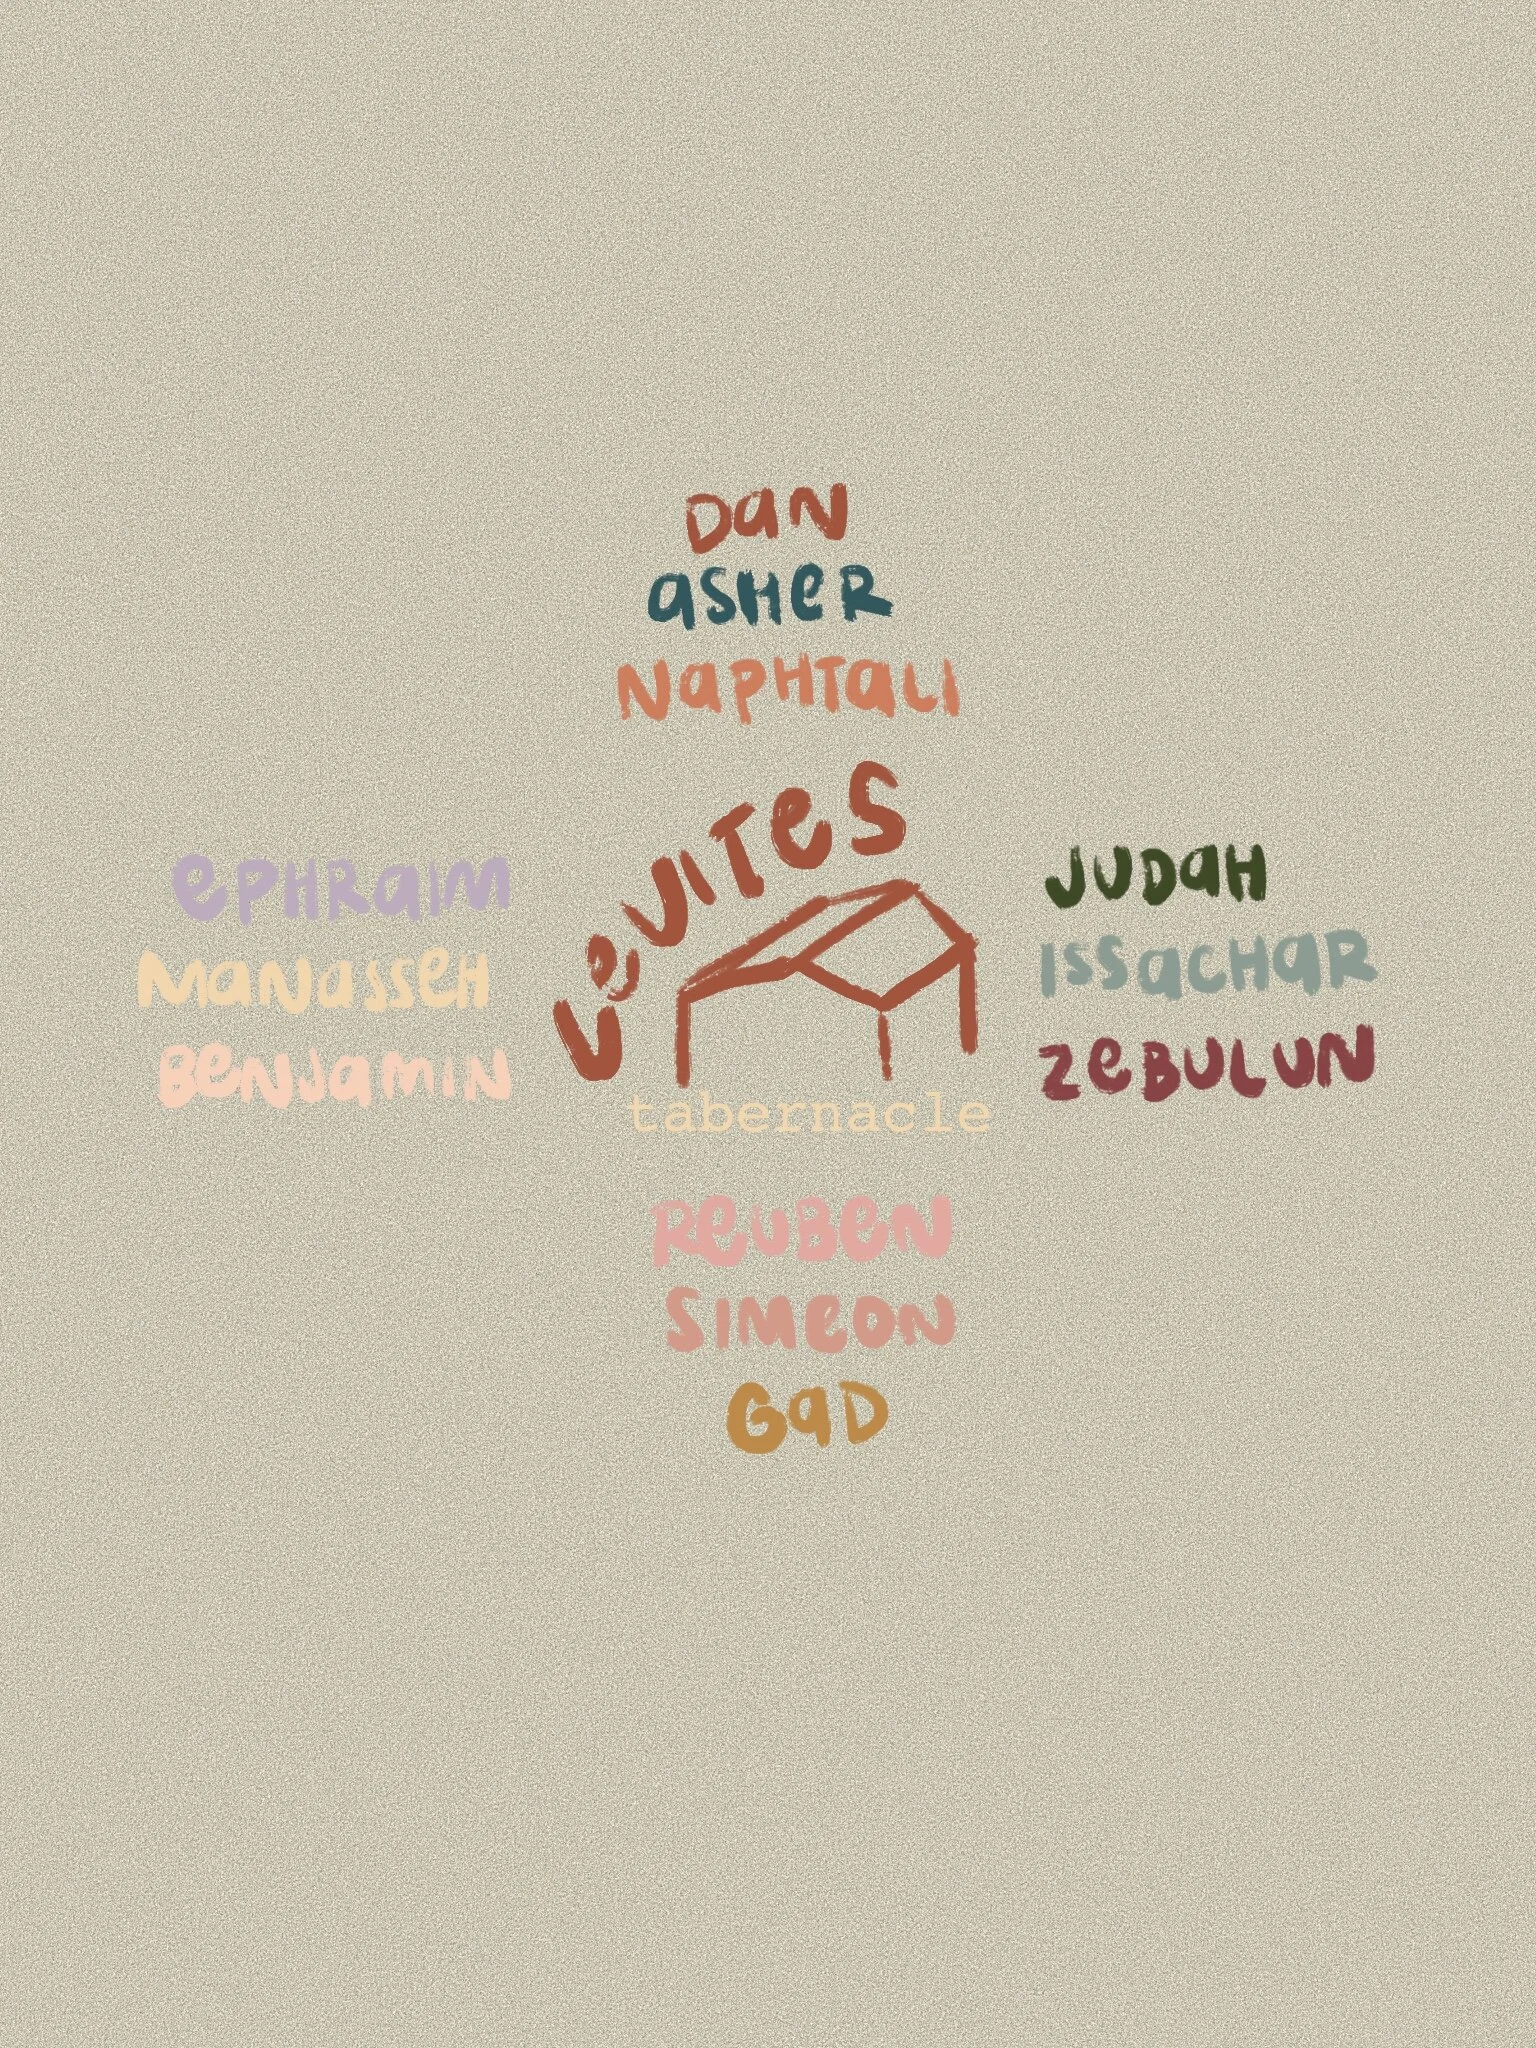 Dan
asHeR
NaPHTali
LeviTes
ePHRaim
Manasseh
Benjamin
JuDaH
IssacHaR
ZeBulun
tabernacle
ReuBen
Simeon
GaD